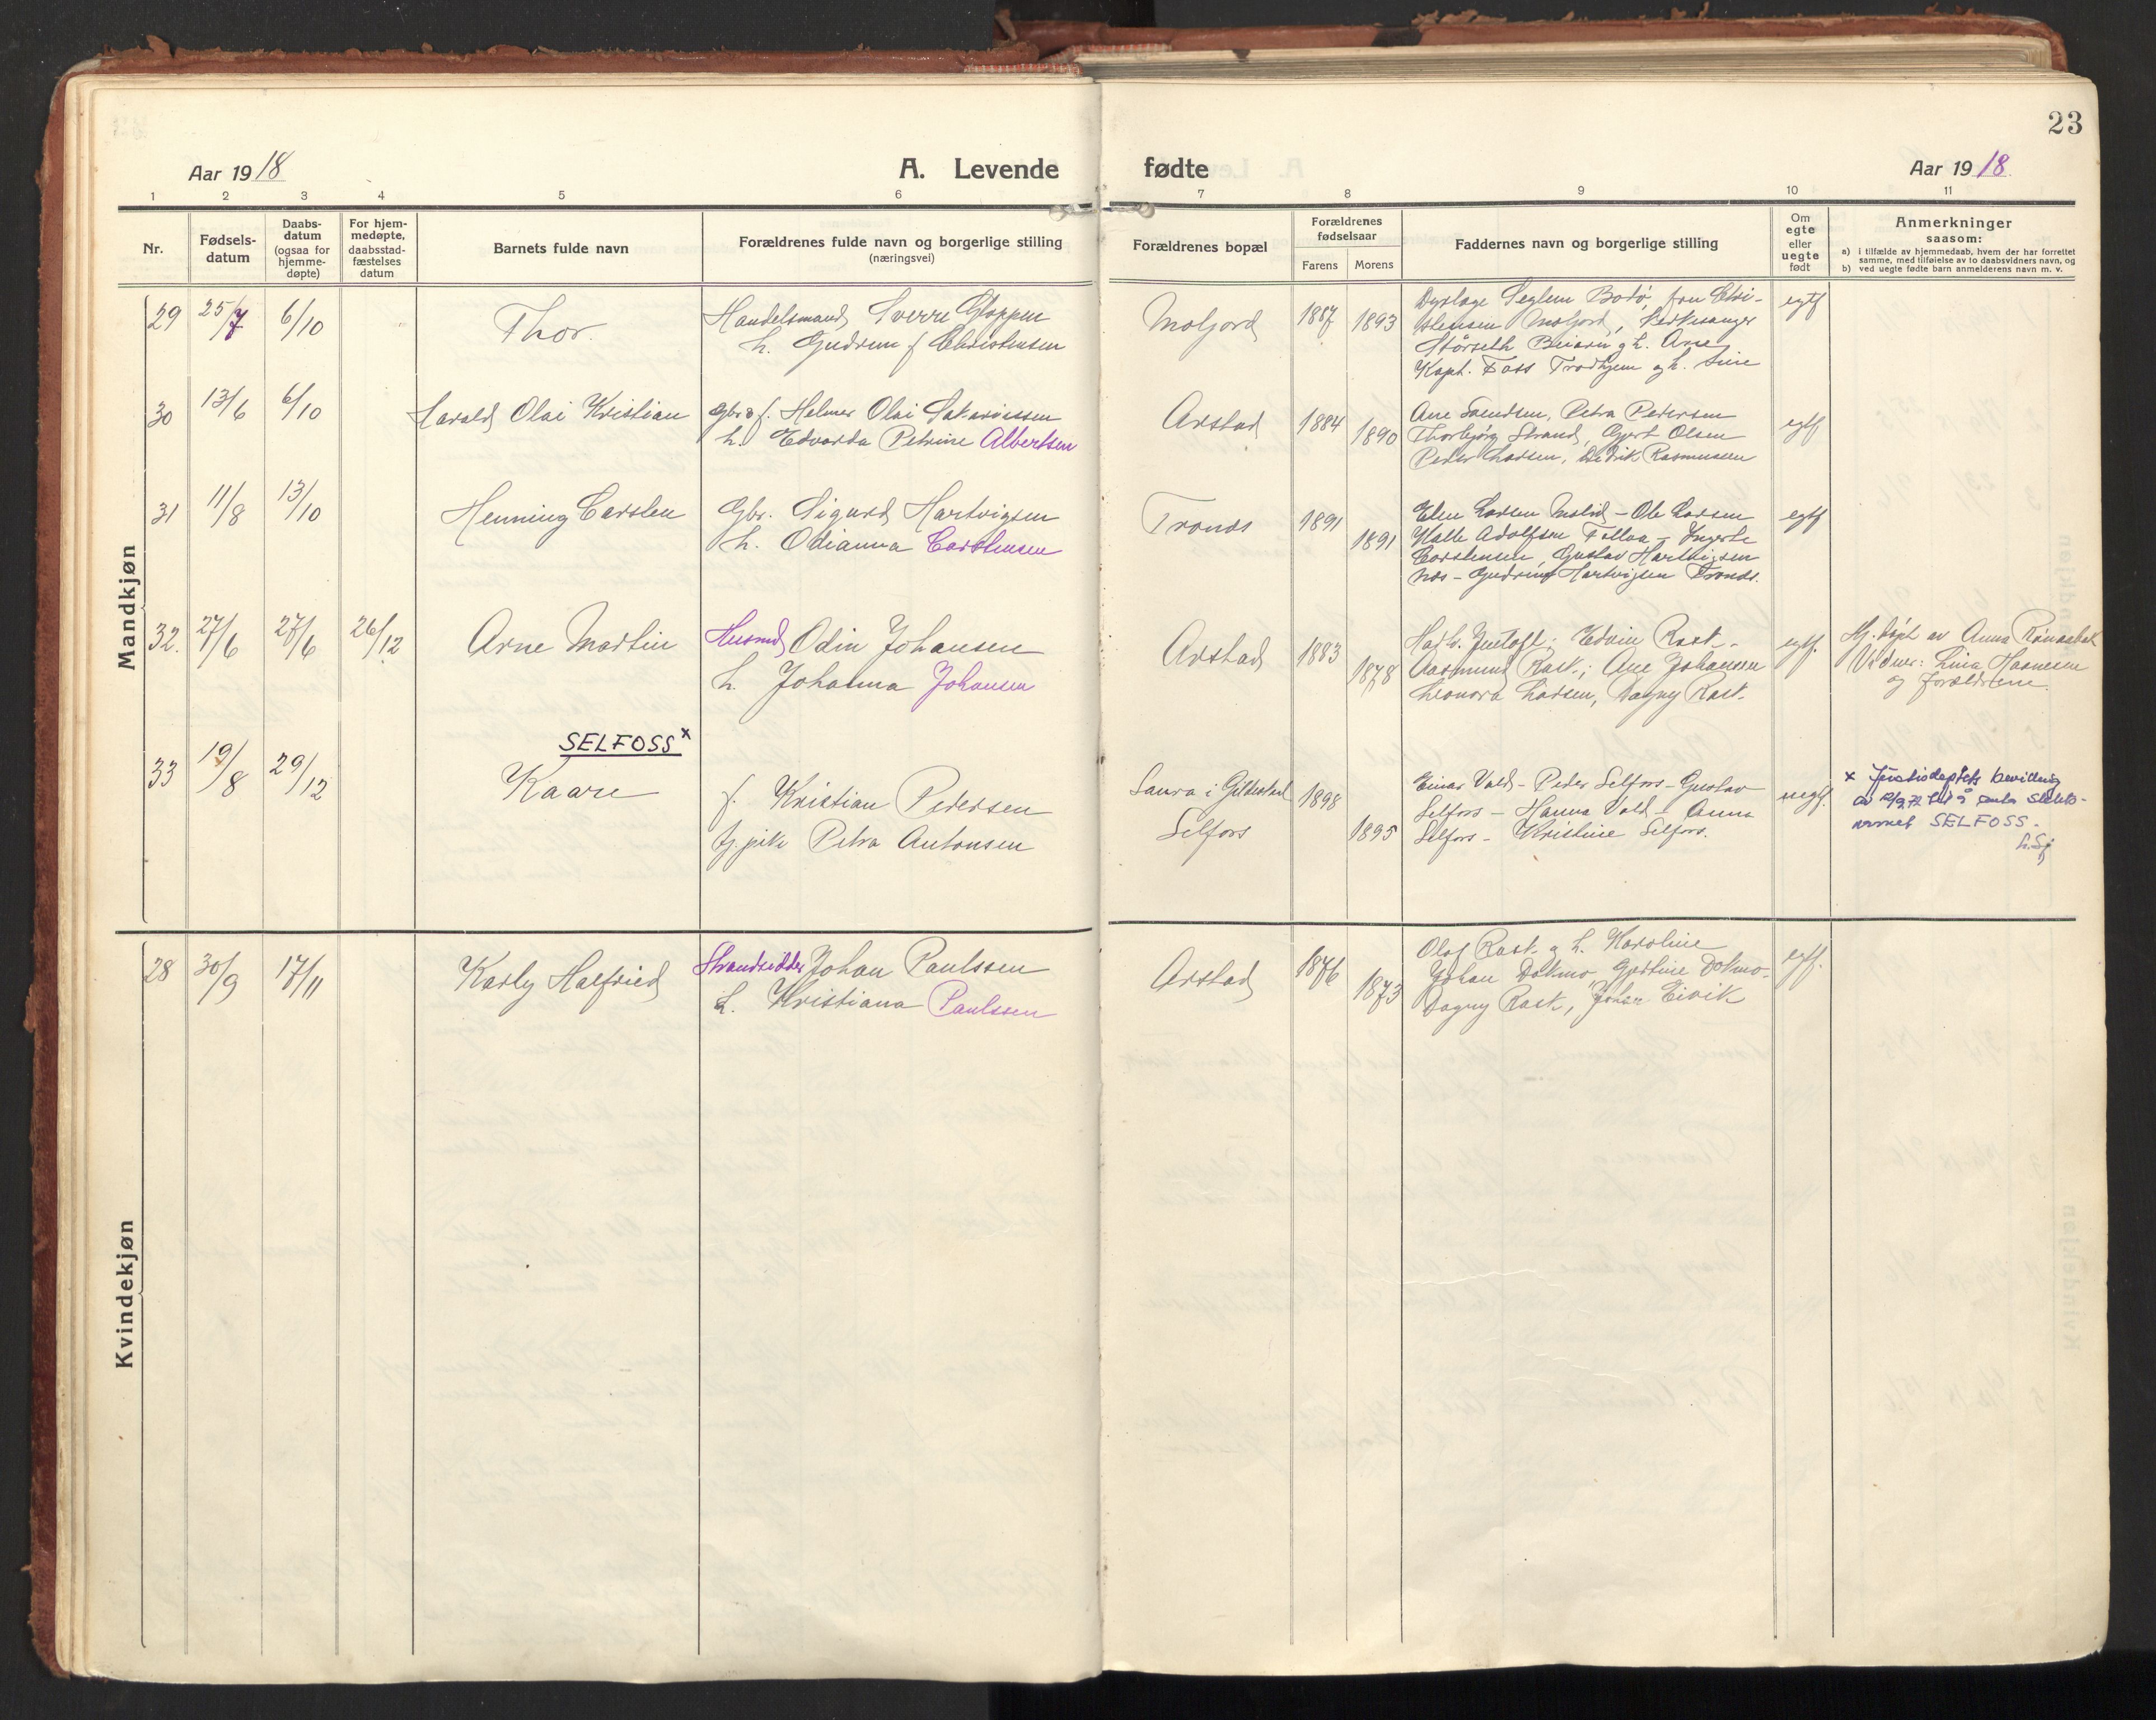 23
Aar 1918
A. Levende fødte
Aar 1918
1 2 3 4 5 6 7 8 9 10 11
Nr.
Fødsels-
datum
Daabs-
datum
(ogsaa for
hjemme-
døpte)
For hjem-
medøpte,
daabsstad-
fæstelses
datum
Barnets fulde navn
Forældrenes fulde navn og borgerlige stilling
(næringsvei)
Forældrenes bopæl
Forældrenes
fødselsaar
Farens Morens
Faddernes navn og borgerlige stilling
Om
egte
eller
uegte
født
Anmerkninger
saasom:
a) i tilfælde av hjemmedaab, hvem der har forrettet
samme, med tilføielse av to daabsvidners navn, og
b) ved uegte fødte barn anmelderens navn m. v.
Mandkjøn
29 25/7 6/10 Thor.
Handelsmand Sverre Gloppen
h. Gudrun f Christensen
Moljord 1887 1893
Seglem Bodø, fru Chri-
stensen Moljord, Kirkesanger
Størseth Beiarn og h. Ane
Kapt. Foss Trondhjem og h.
egtf
30 13/6 6/10 Harald Olai Kristian
Gbr. f. Helmer Olai Sakariassen
h. Edvarda Petrine Albertsen
Arstad 1884 1890
Ane Svendsen, Petra Pedersen
Thorbjørg Strand, Gjert Olsen
Peder Larsen, Didrik Rasmussen
egtf
31 11/8 13/10 Henning Carsten
Gbr. Sigurd Hartvigsen
h. Odianna Carstensen
Tronds 1891 1891
Elen Larsen - Ole Larsen
Kalle Adolfsen Tollaa -
Carstensen, Gustav Hartvigsen
Nes - Gudrun Hartvigsen Tronds.
egtf
32. 27/6 27/6 26/12 Arne Martin
Husmd Odin Johansen
h. Johanna Johansen
Arstad 1883 1878
Edvin Rast -
Aasmund Rast.; Ane Johansen
Leonora Larsen, Dagny Rast.
egtf.
Hj. døpt av Anna
Vidner: Lina Hansen
og forældrene.
33 19/8 29/12
SELFOSS x
Kaare
f. Kristian Pedersen
Gj. pike Petra Antonsen
Saura i Gildeskaal
Selfors
1898 1895
Einar Vold - Peder Selfors - Gustav
Selfors - Hanna Vold - Anna
Selfors - Kristine Selfors.
uegtf.
x Justisdeptets bevilling
til å anta slekts-
navnet SELFOSS.
Kvindekjøn
28 30/9 17/11 Karly Halfried
Strandsidder Johan Paulssen
h. Kristiana Paulssen
Arstad 1876 1873
Olaf Rast og h. Karoline
Johan Dokmo, Gjertine Dokmo -
Dagny Rast, Johan Eivik
egtf.